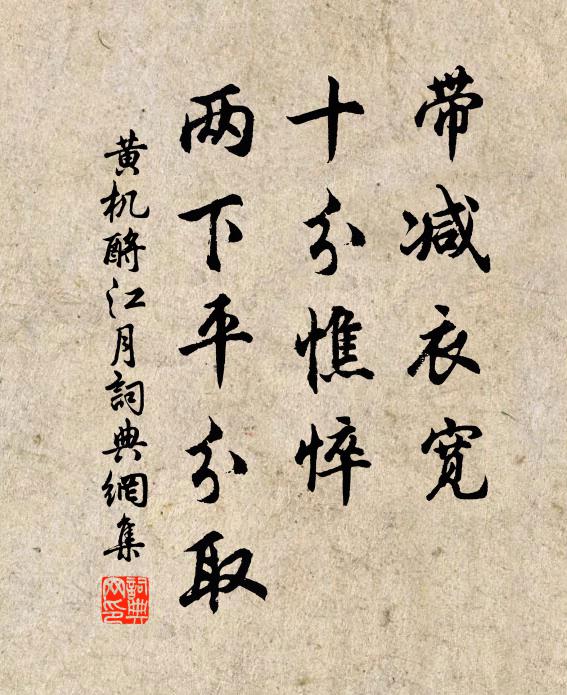 带减衣宽
十分憔悴
两下平分取
黄机酹江月詞典網集
詞典
网印